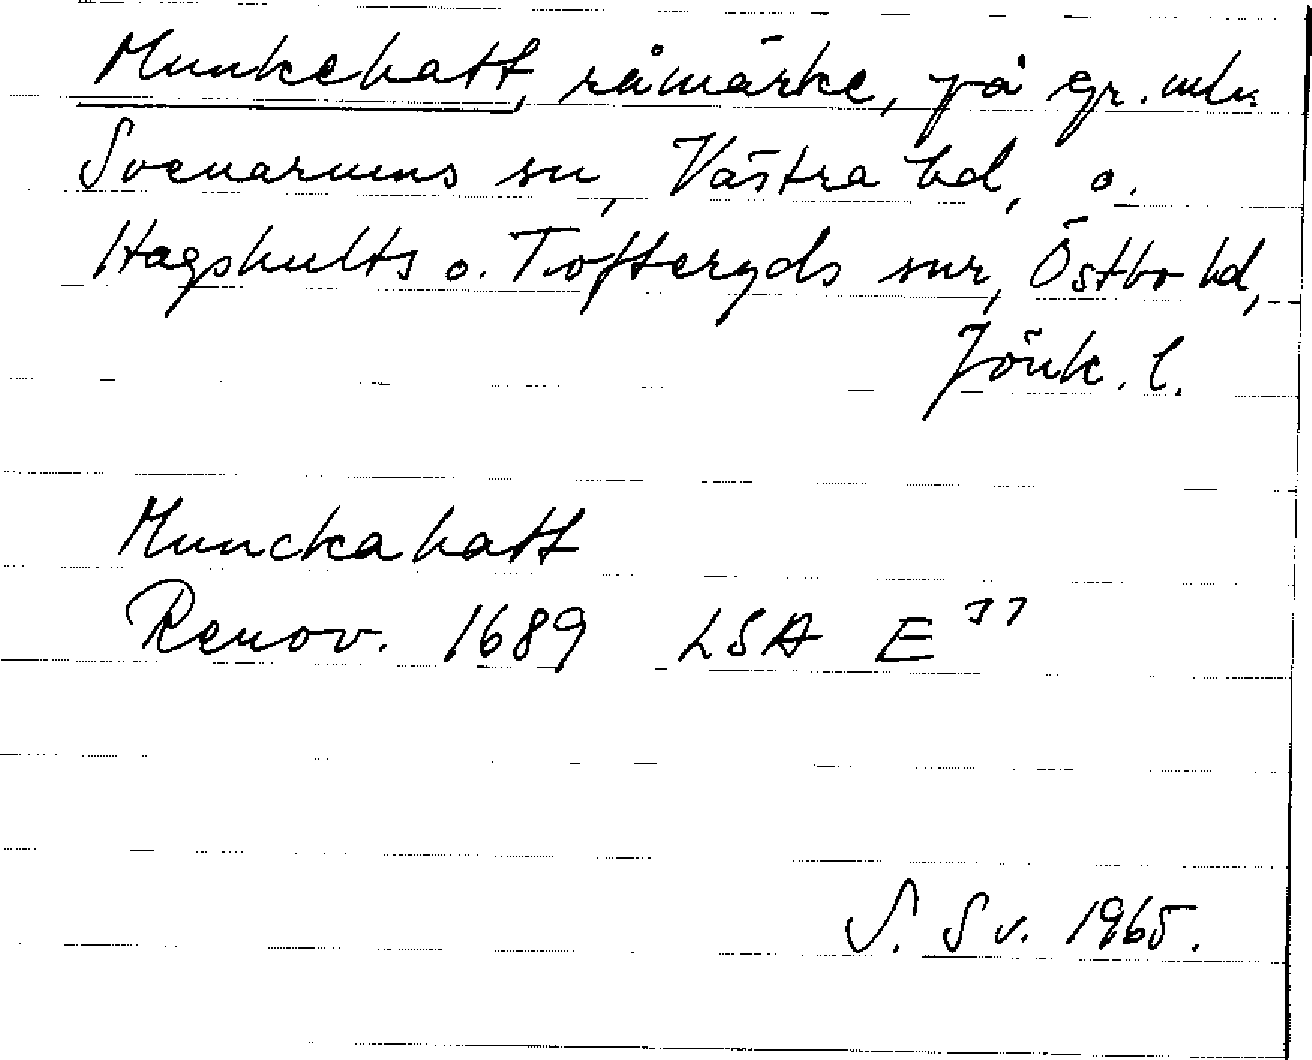 Munkehatt, råmärke, på gr. mln
Svenarums sn, Västra hd, o.
Hagshults o. Tofteryds snr, Östbo hd,
Jönk. l.
Munckahatt
Renov. 1689 LSA E 37
S. Sv. 1965.